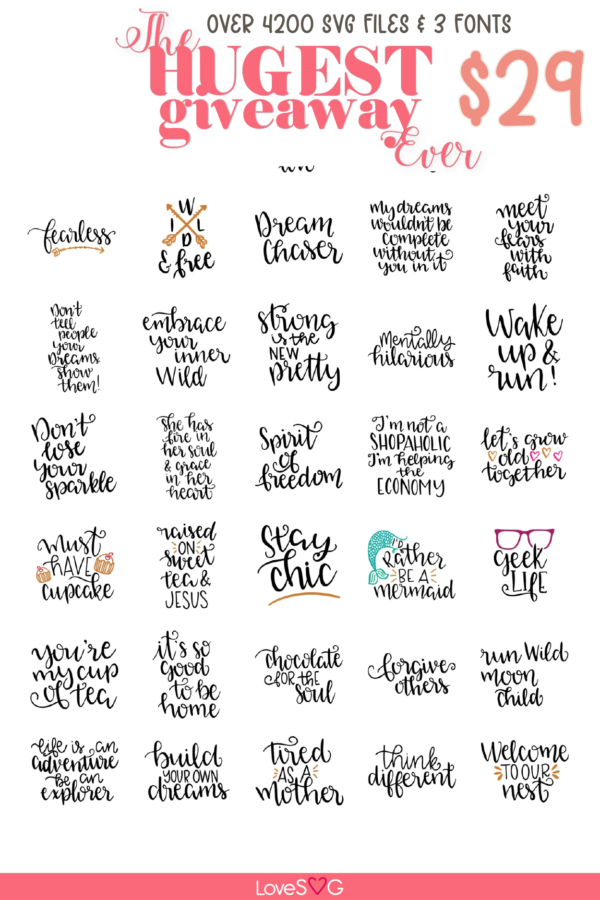 OVER 4200 SVG FILES & 3 FONTS
The
HUGEST
giveaway
Ever
$29
fearless
WILD
& free
Dream
Chaser
my dreams
wouldn't be
complete
without
you in it
meet
your
fears
with
faith
Don't
tell
people
your
Dreams
show
them!
embrace
your
inner
Wild
strong
is the
NEW
pretty
Mentally
hilarious
Wake
up &
run!
Don't
lose
your
sparkle
She has
fire in
her soul
& grace
in her
heart
Spirit
of
freedom
I'm not a
SHOPAHOLIC
I'm helping
the
ECONOMY
let's grow
old
together
must
HAVE
cupcake
raised
ON
sweet
tea &
JESUS
Stay
chic
I'D
Rather
BE A
mermaid
geek
LIFE
you're
my cup
of tea
it's so
good
to be
home
chocolate
FOR THE
soul
forgive
others
run Wild
moon
child
life is an
adventure
be an
explorer
build
YOUR OWN
dreams
tired
AS A
mother
think
different
Welcome
TO OUR
nest
LoveSVG